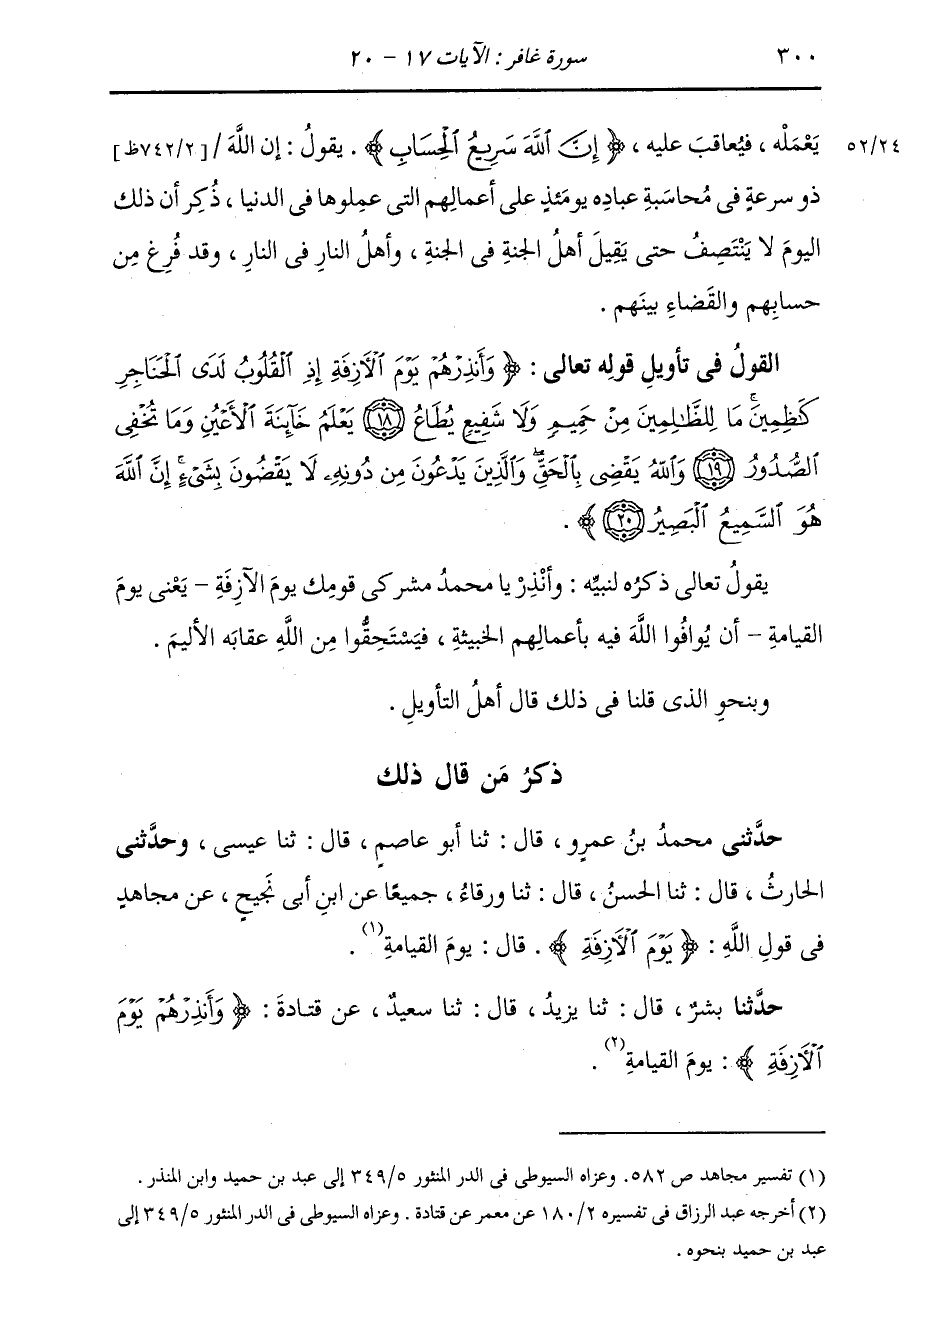 ٣٠٠ سورة غافر : الآيات ١٧ - ٢٠
٥٢/٢٤ يَعْمَلْه ، فيُعاقبَ عليه ، ﴿ إِنَّ ٱللَّهَ سَرِيعُ ٱلْحِسَابِ ﴾ . يقولُ : إن اللَّهَ / [٧٤٢/٢ظ]
ذو سرعةٍ فى مُحاسَبةِ عبادِه يومَئذٍ على أعمالِهم التى عمِلوها فى الدنيا ، ذُكِر أن ذلك
اليومَ لا يَنْتَصِفُ حتى يَقِيلَ أهلُ الجنةِ فى الجنةِ ، وأهلُ النارِ فى النارِ ، وقد فُرِغ مِن
حسابِهم والقَضاءِ بينَهم .
القولُ فى تأويلِ قولِه تعالى : ﴿ وَأَنذِرْهُمْ يَوْمَ ٱلْأَزِفَةِ إِذِ ٱلْقُلُوبُ لَدَى ٱلْحَنَاجِرِ
كَٰظِمِينَۚ مَا لِلظَّٰلِمِينَ مِنْ حَمِيمٍ وَلَا شَفِيعٍ يُطَاعُ ﴿١٨﴾ يَعْلَمُ خَآئِنَةَ ٱلْأَعْيُنِ وَمَا تُخْفِى
ٱلصُّدُورُ ﴿١٩﴾ وَٱللَّهُ يَقْضِى بِٱلْحَقِّۖ وَٱلَّذِينَ يَدْعُونَ مِن دُونِهِۦ لَا يَقْضُونَ بِشَىْءٍۗ إِنَّ ٱللَّهَ
هُوَ ٱلسَّمِيعُ ٱلْبَصِيرُ ﴿٢٠﴾ ﴾ .
يقولُ تعالى ذكرُه لنبيِّه : وأنْذِرْ يا محمدُ مشركى قومِك يومَ الآزِفَةِ - يَعْنى يومَ
القيامةِ - أن يُوافُوا اللَّهَ فيه بأعمالِهم الخبيثةِ ، فيَسْتَحِقُّوا مِن اللَّهِ عقابَه الأليمَ .
وبنحوِ الذى قلنا فى ذلك قال أهلُ التأويلِ .
ذكرُ مَن قال ذلك
حدَّثنى محمدُ بنُ عمرٍو ، قال : ثنا أبو عاصمٍ ، قال : ثنا عيسى ، وحدَّثنى
الحارثُ ، قال : ثنا الحسنُ ، قال : ثنا ورقاءُ ، جميعًا عن ابنِ أبى نَجيحٍ ، عن مجاهدٍ
فى قولِ اللَّهِ : ﴿ يَوْمَ ٱلْأَزِفَةِ ﴾ . قال : يومَ القيامةِ(١) .
حدَّثنا بشرٌ ، قال : ثنا يزيدُ ، قال : ثنا سعيدٌ ، عن قتادةَ : ﴿ وَأَنذِرْهُمْ يَوْمَ
ٱلْأَزِفَةِ ﴾ : يومَ القيامةِ(٢) .
(١) تفسير مجاهد ص ٥٨٢. وعزاه السيوطى فى الدر المنثور ٣٤٩/٥ إلى عبد بن حميد وابن المنذر .
(٢) أخرجه عبد الرزاق فى تفسيره ١٨٠/٢ عن معمر عن قتادة . وعزاه السيوطى فى الدر المنثور ٣٤٩/٥ إلى
عبد بن حميد بنحوه .